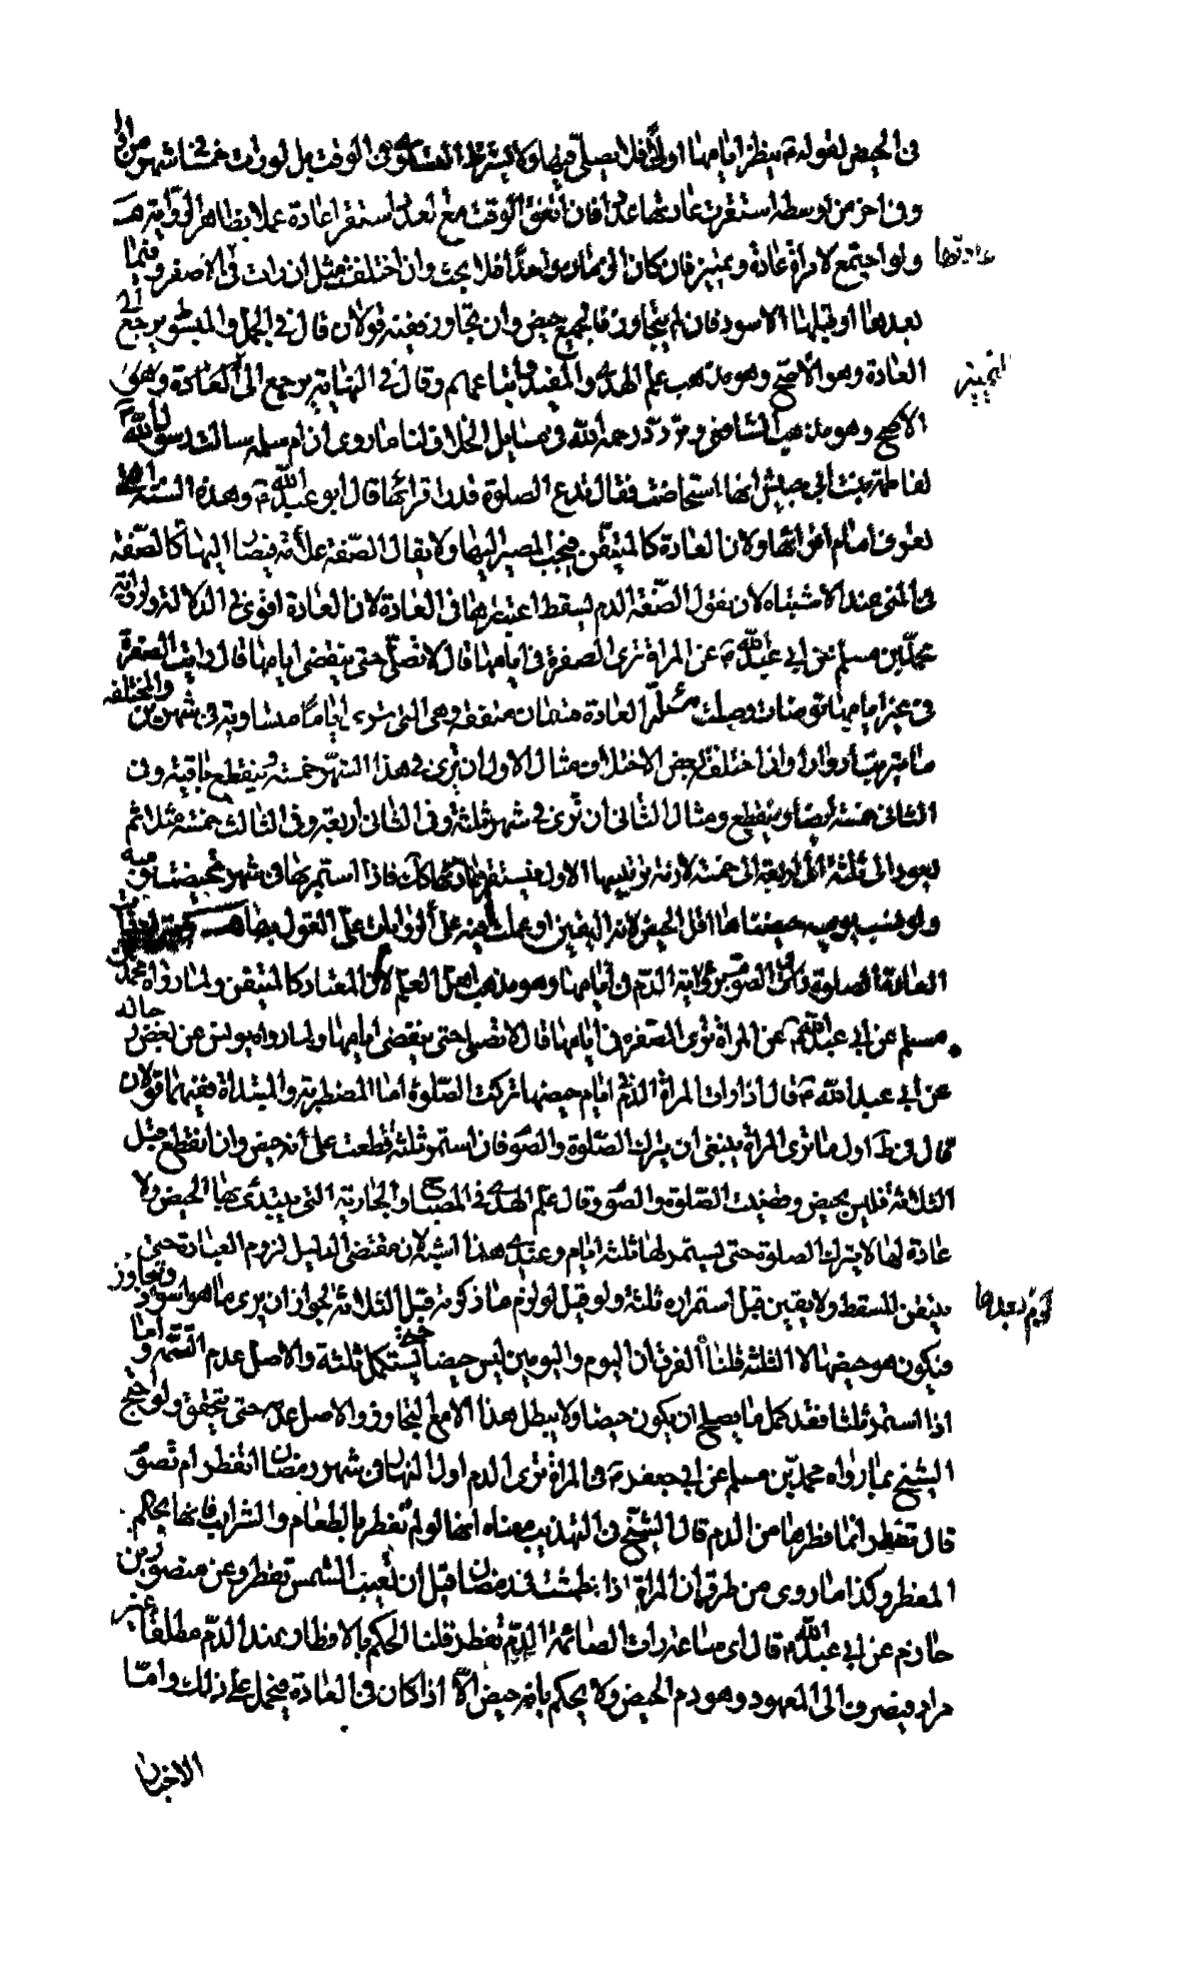 في الحيض لقوله ع ينظر ايامها فلا يصلي فيها ولا يشترط في الوقت بل لو رات خمسة في شهر من اوله
وفي اخر من اوسطه استقرت عادتها عددا فان اتفق الوقت مع العدد استقر عادة عملا بظاهر الرواية
عادتها
ولو اجتمع لامراة عادة وتمييز فان كان الزمان واحدا فلا بحث وان اختلف مثل ان رات في الاصفر وفيما
بعدها او قبلها الاسود فان لم يتجاوز فالجميع حيض وان تجاوز ففيه قولان قال في الجمل والمبسوط يرجع الى
التمييز
العادة وهو الاصح وهو مذهب علم الهدى والمفيد واتباعهم وقال في النهاية يرجع الى العادة وهو
الاصح وهو مذهب الشافعي وتردد رحمه الله في مسائل الخلاف لنا ما روى ان ام سلمه سالت رسول الله
لفاطمة بنت ابي حبيش انها استحاضت فقال تدع الصلوة قدر اقرائها قال ابو عبد الله ع وهذه السنة التي
تعرف ايام اقرائها ولان العادة كالمتيقن فيجب المصير اليها ولا يقال الصفة علامة فيصار اليها كالصفة
في المني عند الاشتباه لان نقول الصفة الدم يسقط اعتبارها في العادة لان العادة اقوى في الدلالة ولرواية
محمد بن مسلم عن ابي عبد الله ع عن المراة ترى الصفرة في ايامها قال لا تصلي حتى ينقضي ايامها فان رات الصفرة
في غير ايامها توضات وصلت مسئلة العادة متفقه والمختلفه وهي التي ترى اياما متساوية في شهرين
ما يترتب ادوارا وان اختلف بعض الاختلاف مثال الاول ان ترى في هذا الشهر خمسة وينقطع باقيه وفي
الثاني خمسة ايضا وينقطع ومثال الثاني ان ترى في شهر ثلثة وفي الثاني اربعة وفي الثالث خمسة مثلا ثم
يعود الى ثلثة الى اربعة الى خمسة لان ترتيبها الاول فيستقر عادتها كذلك فاذا استمر بها في شهر تحيضت بنوبته
ولو نسيت نوبته حيضناها اقل الحيض لانه اليقين او عملت فيه على الروايات على القول بها
العادة الصلوة والصوم برؤية الدم في ايامها وهو مذهب اهل العلم لان المعتاد كالمتيقن ولما رواه محمد بن
مسلم عن ابي عبد الله ع عن المراة ترى الصفره في ايامها قال لا تصلي حتى ينقضي ايامها ولما رواه يونس عن بعض رجاله
عن ابي عبد الله ع قال اذا رات المراة الدم ايام حيضها تركت الصلوة اما المضطربة والمبتداة ففيهما قولان
قال في ط اول ما ترى المراة ينبغي ان يترك الصلوة والصوم فان استمر ثلثة قطعت على انه حيض وان انقطع قبل
الثلاثة فليس بحيض وقضيت الصلوة والصوم وقال علم الهدى في المصباح والجارية التي يبتدى بها الحيض ولا
عادة لها لا يترك الصلوة حتى يستمر لها ثلثة ايام وعندي هذا اشبه لان مقتضى الدليل لزوم العبادة حتى
يتيقن المسقط ولا يقين قبل استمراره ثلثة ولو قيل لو لزم ما ذكرته قبل الثلاثة لجواز ان يرى ما هو اسود وتجاوز
لو لم بعدها
فيكون هو حيضها لا الثلثة قلنا الفرق ان اليوم واليومين ليس حيضا حتى يستكمل ثلثة والاصل عدم التتمة واما
اذا استمر ثلثا فقد كمل ما يصلح ان يكون حيضا ولا يبطل هذا الا مع التجاوز والاصل عدمه حتى يتحقق ولو احتج
الشيخ بما رواه محمد بن مسلم عن ابي جعفر ع في المراة ترى الدم اول النهار في شهر رمضان اتفطر ام تصوم
قال تفطر انما فطرها من الدم قال الشيخ في التهذيب معناه انها لو لم تفطر بالطعام والشراب فانها بحكم
المفطر وكذا ما روى من طرق ان المراة اذا طمثت في رمضان قبل ان تغيب الشمس تفطر وعن منصور بن
حازم عن ابي عبد الله ع قال اي ساعة رات الصائمة الدم تفطر قلنا الحكم بالافطار عند الدم مطلقا غير
مراد فيصرف الى المعهود وهو دم الحيض ولا يحكم بانه حيض الا اذا كان في العادة فيحمل على ذلك واما
الاخبار